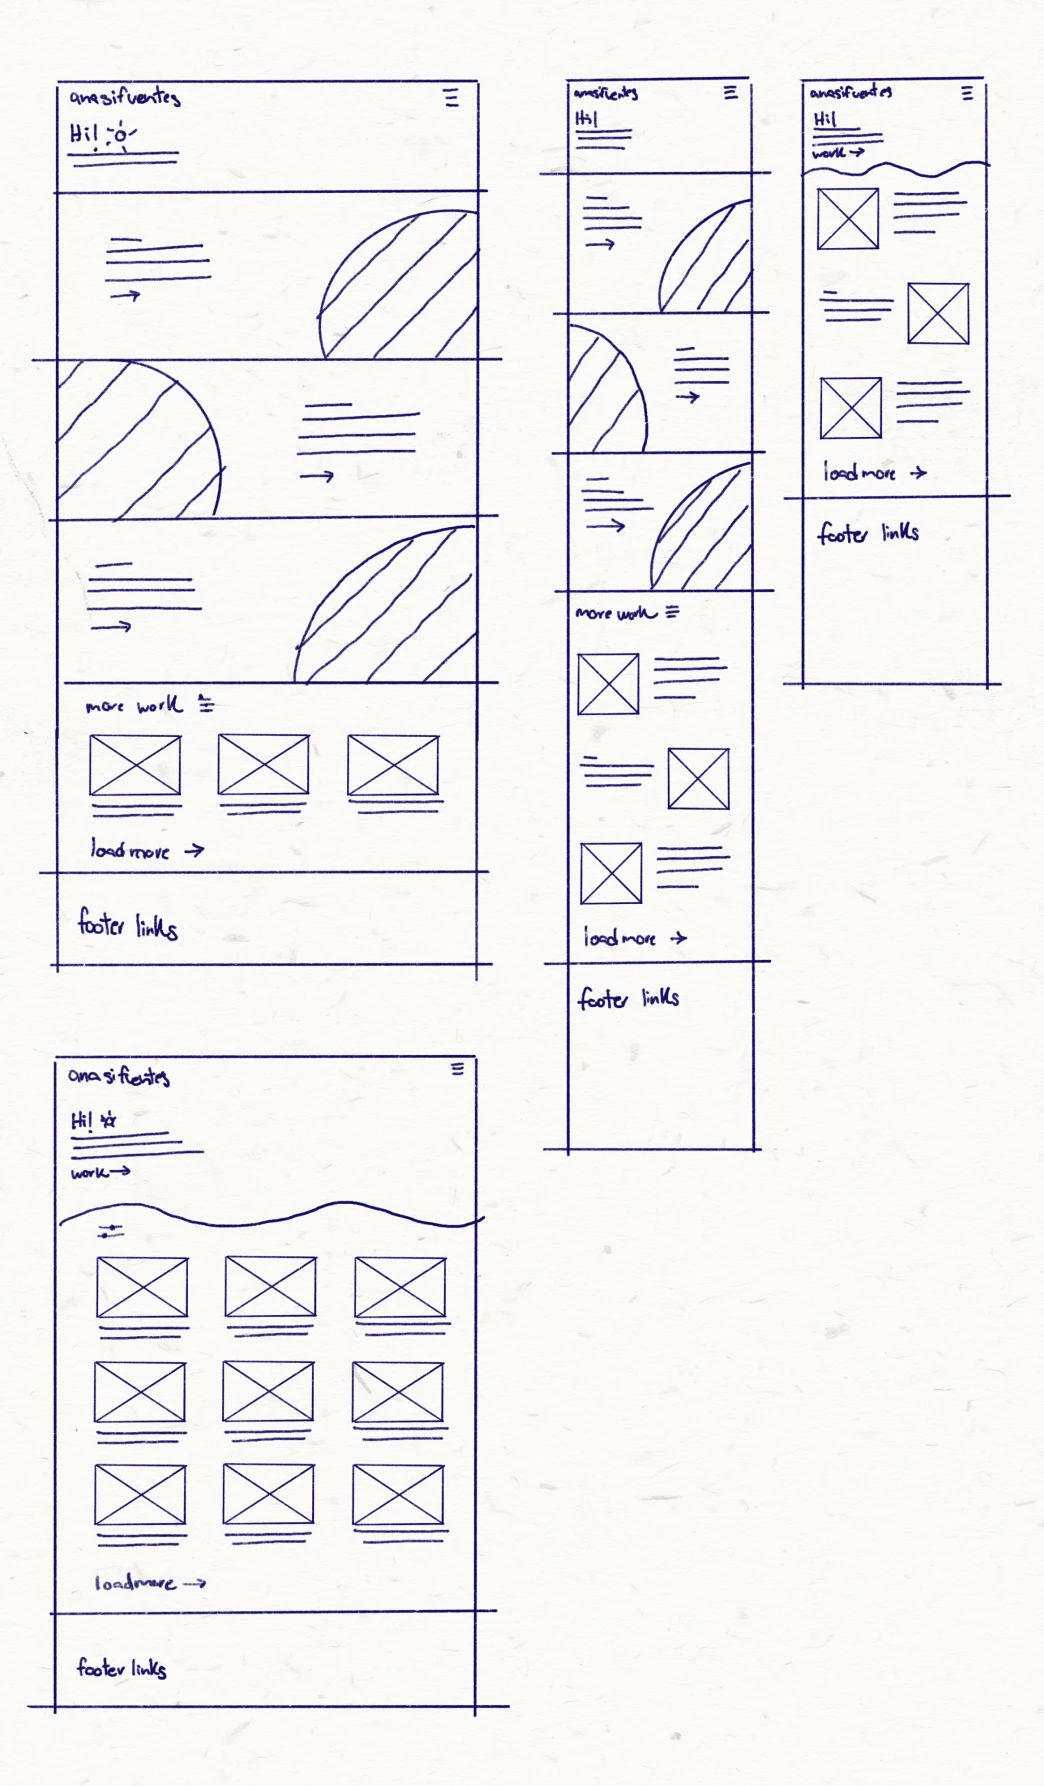 anasifuentes
Hi!
more work
load more →
footer links
anasifuentes
Hi!
more work
load more →
footer links
anasifuentes
Hi!
work →
load more →
footer links
anasifuentes
Hi!
work →
load more →
footer links